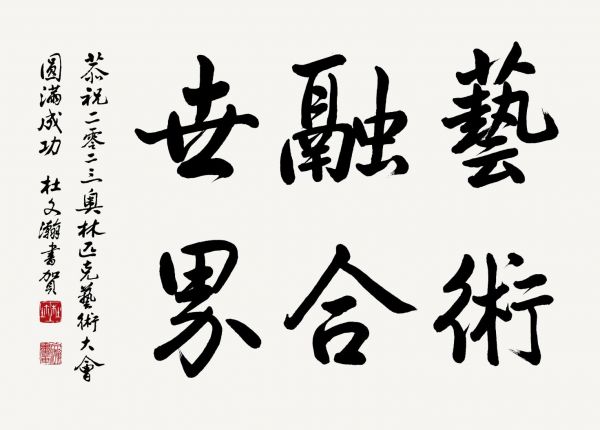 藝術
融合
世界
恭祝二零二三奧林匹克藝術大會
圓滿成功 杜文瀚書賀